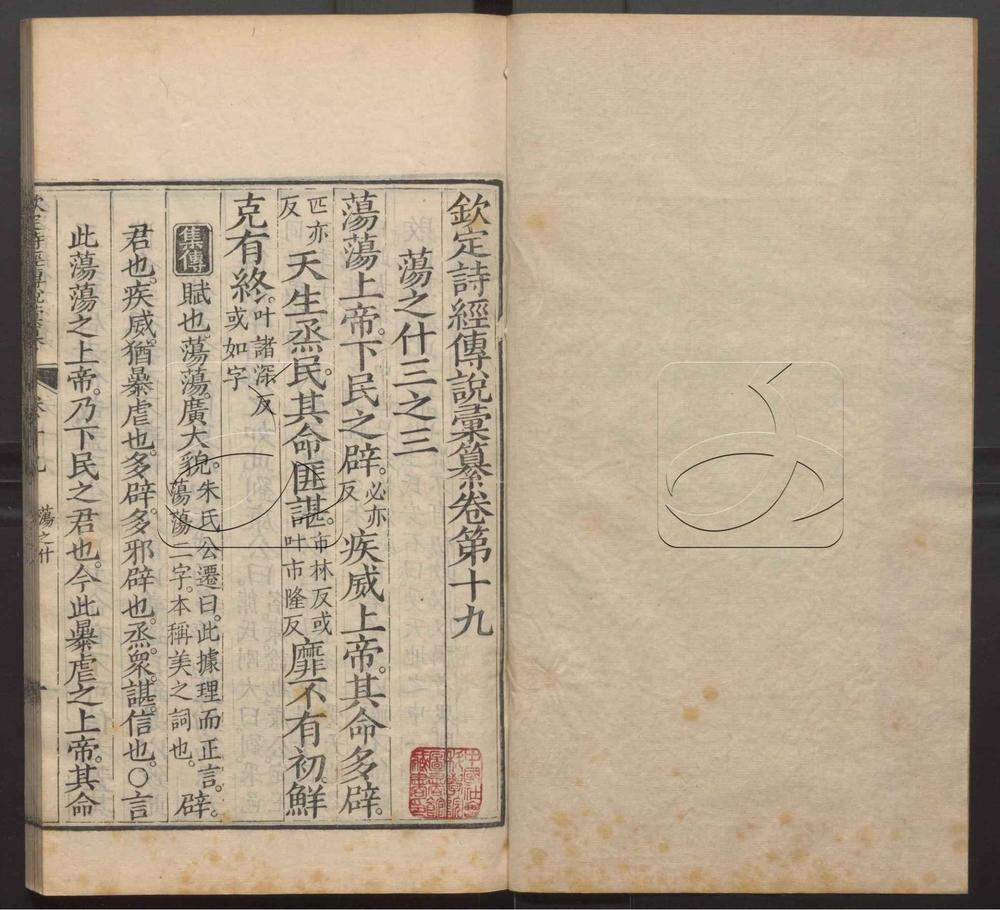 欽定詩經傳說彙纂卷第十九
蕩之什三之三
蕩蕩上帝。下民之辟。必亦反疾威上帝。其命多辟。
匹亦反天生烝民。其命匪諶。市林反或叶市隆反靡不有初。鮮
克有終。叶諸深反或如字
集傳 賦也。蕩蕩。廣大貌。朱氏公遷曰。此據理而正言。蕩蕩二字。本稱美之詞也。辟。
君也。疾威。猶暴虐也。多辟。多邪辟也。烝。衆。諶。信也。○言
此蕩蕩之上帝。乃下民之君也。今此暴虐之上帝。其命
欽定詩經傳說彙纂 卷十九 蕩之什
中國社會科學院圖書館藏書印